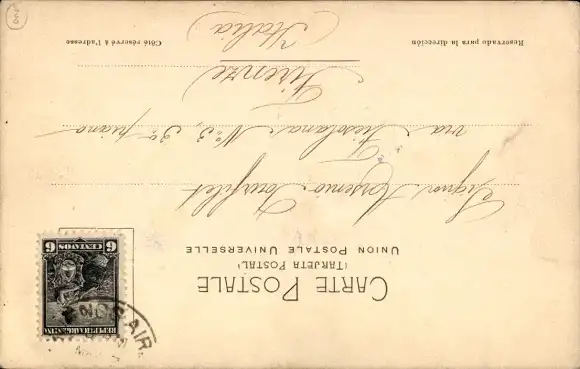 CARTE POSTALE
(TARJETA POSTAL)
UNION POSTALE UNIVERSELLE
REPUBLICA ARGENTINA
6 CENTAVOS 6
Signor
via Fiesolana No 3, 3o piano
Firenze
(Italia)
Reservado para la dirección
Côté réservé à l'adresse